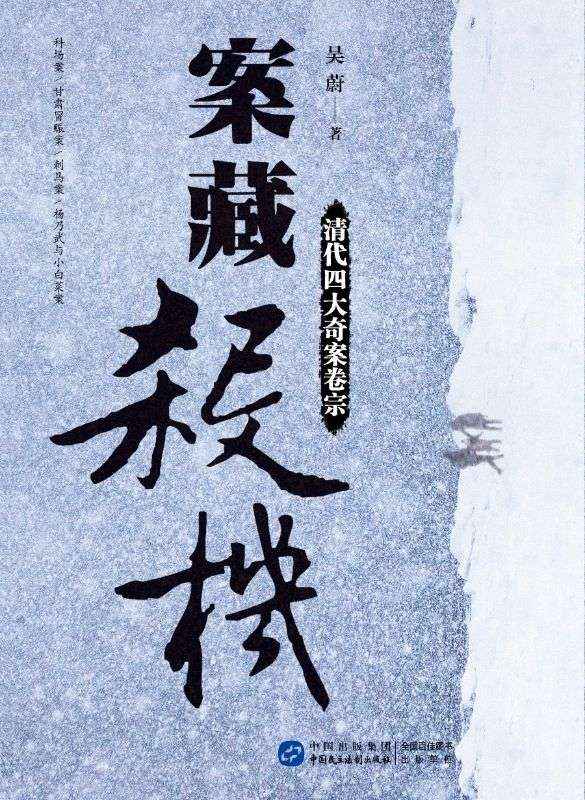 吴蔚——著
案藏殺機
清代四大奇案卷宗
科场案/甘肃冒赈案/刺马案/杨乃武与小白菜案
中国出版集团
中国民主法制出版社
全国百佳图书
出版单位